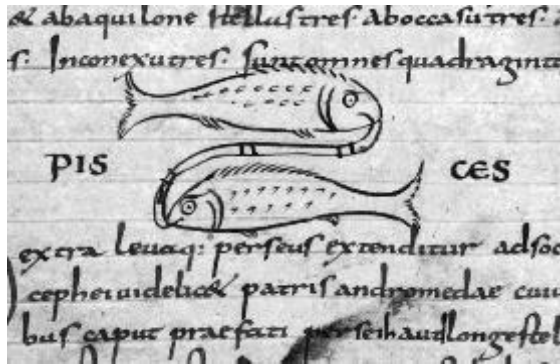 & abaquilone stellustres· aboccasutres·
s· Inconexutres· Suntomnesquadragint
PIS CES
extra leuaq: perseus extenditur adsoc
cepheiuidelic& patrisandromedae cuiu
bus caput praefati perseihaudlongestel